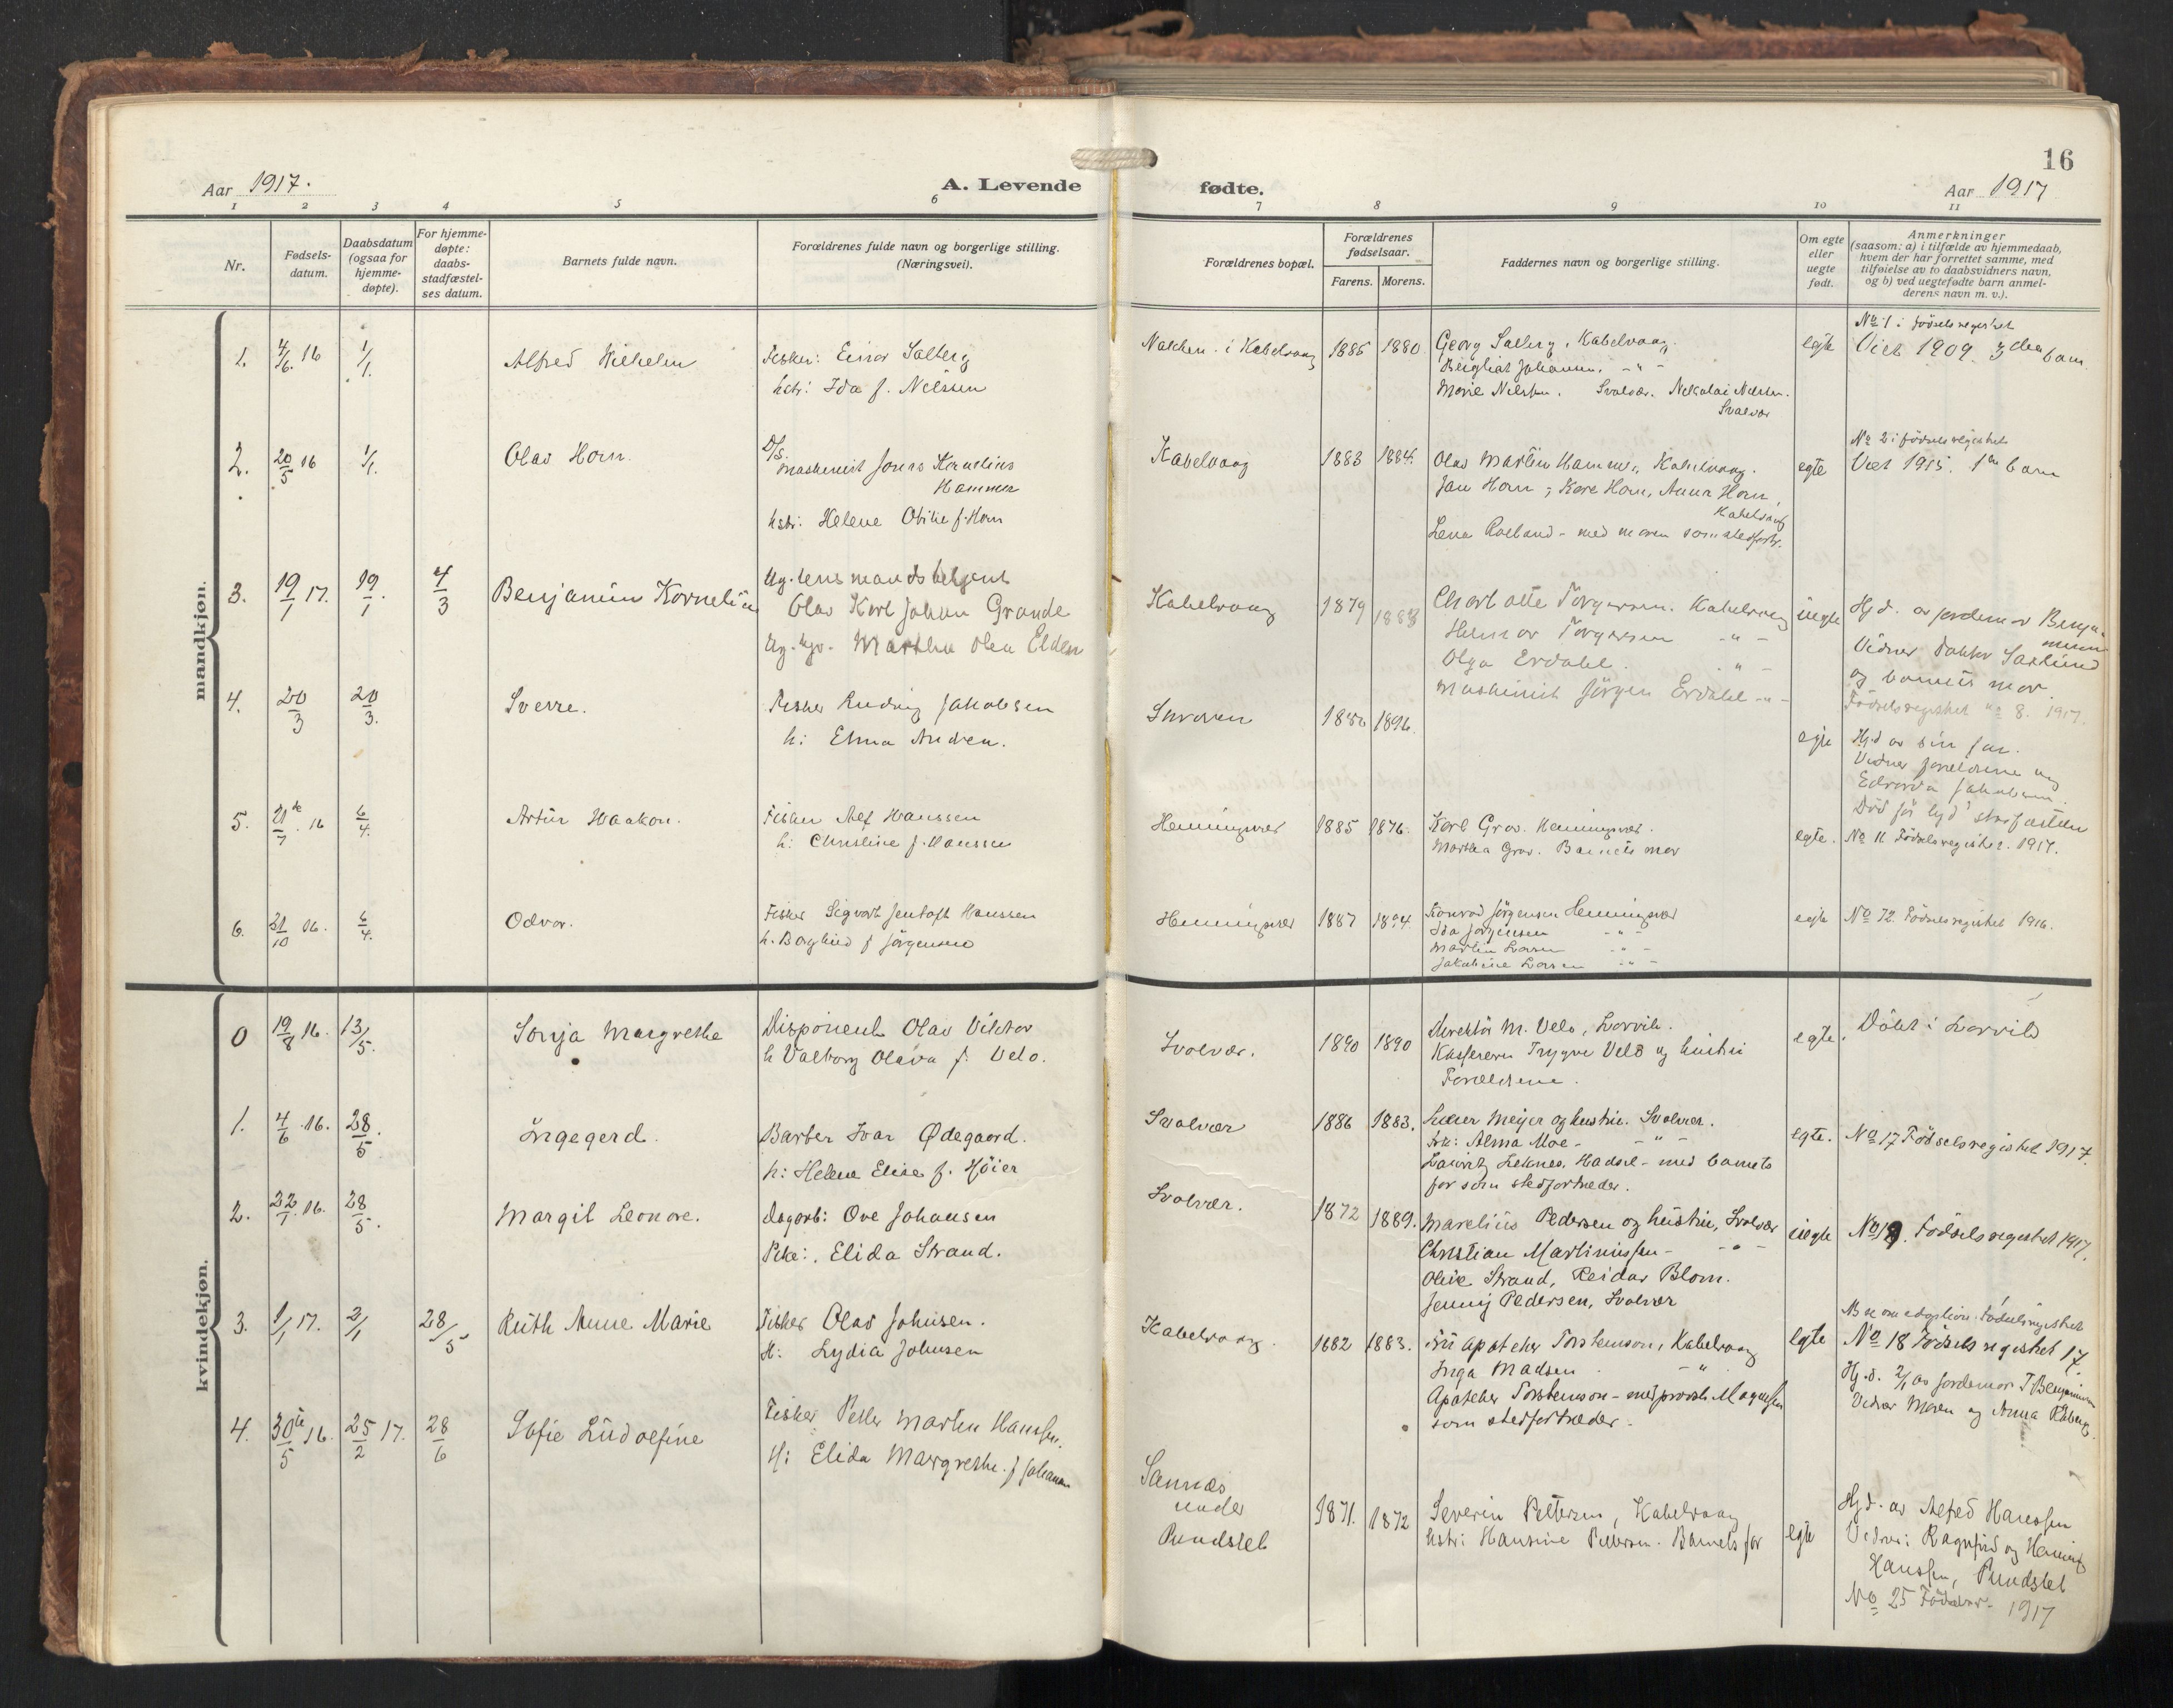 Aar 1917.
A. Levende
fødte.
Aar 1917
16
1 2 3 4 5 6 7 8 9 10 11
Nr.
Fødsels-
datum.
Daabsdatum
(ogsaa for
hjemme-
døpte).
For hjemme-
døpte:
daabs-
stadfæstel-
ses datum.
Barnets fulde navn.
Forældrenes fulde navn og borgerlige stilling.
(Næringsvei).
Forældrenes bopæl.
Forældrenes
fødselsaar.
Farens. Morens.
Faddernes navn og borgerlige stilling.
Om egte
eller
uegte
født.
Anmerkninger
(saasom: a) i tilfælde av hjemmedaab,
hvem der har forrettet samme, med
tilføielse av to daabsvidners navn,
og b) ved uegtefødte barn anmel-
derens navn m. v.).
mandkjøn.
1. 4/6. 16 1/1. Alfred Wilhelm
Fisker: Einar Salberg
hstr: Ida f. Nilssen
i Kabelvaag 1885 1880
Georg Salberg, Kabelvaag.
Johansen. -"-
Marie Nilssen. Svolvær. Nikolai Nilssen.
Svolvær
egte
No 1 i Fødselsregistret
Viet 1909. 3die barn.
2. 20/5 16 1/1. Olav Horn.
D/S.
Maskinist Jonas Kornelius
Hammer
hstr: Helene Otilie f. Horn
Kabelvaag 1883 1884.
Olav Martin Hammer, Kabelvaag.
Jan Horn, Kare Horn, Anna Horn,
Kabelvaag
Lena Roeland - med moren som stedfortr.
egte
No 2 i fødselsregistret
Viet 1915. 1ste barn
3. 19/1 17. 19/1. 4/3 Benjamin Kornelius
Ug. lensmandsbetjent
Olav Karl Johan Grande
Ug. Marthe Olea Elden
Kabelvaag 1879 1888
Charlotte Torgersen. Kabelvaag
Torgersen -"-
Olga Erdahl. -"-
Maskinist Jørgen Erdahl -"-
uegte
Hj.d. av jordemor Benja-
minsen
Vidner Saxlund
og barnets mor.
Fødselsregistret No 8. 1917.
4. 20/3 20/3. Sverre.
Fisker Ludvig Jakobsen
h: Elma Andsen.
1896.
egte
Hj.d av sin far.
Vidner forældrene og
Edvarda Jakobsen.
5. 21de/7. 16 6/4. Artur Haakon.
Fisker Alf Hanssen
h: Christine f. Hanssen
Henningsvær 1885 1876.
Karl Grav. Henningsvær.
Martha Grav. Barnets mor
egte.
No 11 Fødselsregistret. 1917.
6. 31/10 16. 6/4. Odvar.
Fisker Sigvart Jentoft Hanssen
h. Borghild f Jørgensen
Henningsvær 1887 1894.
Konrad Jørgensen Henningsvær
Ida Jørgensen -"-
Martin Larsen -"-
Jakobine Larsen -"-
egte
No 72 Fødselsregistret 1916.
kvindekjøn.
0 19/8 16. 13/5. Sonja Margrethe
Disponent Olav Viktor
h Valborg Olava f. Velo.
Svolvær. 1890 1890
Direktør M. Velo, Larvik.
Kasserer Trygve Velo og hustru
Forældrene.
egte.
Døbt i Larvik
1. 4/6 .16. 28/5. Ingegerd.
Barber Ivar Ødegaard.
h: Helene Elise f. Høier
Svolvær 1886 1883.
Meyer og hustru. Svolvær.
Frk: Alma Moe - -"-
Lauritz Leknes, Hadsel - med barnets
far som stedfortræder.
egte.
No 17 Fødselsregistret 1917.
2. 22/1. 16. 28/5. Margit Leonore.
Dagarb: Ove Johansen
Pike: Elida Strand.
Svolvær. 1872 1889.
Marelius Pedersen og hustru, Svolvær
Christian Martinussen - -"-
Olive Strand, Reidar Blom.
Jenny Pedersen, Svolvær
uegte
No 19. Fødselsregistret 1917.
3. 1/1 17. 2/1 28/5 Ruth Anne Marie
Fisker Olav Johnsen.
H: Lydia Johnsen
Kabelvaag. 1882 1883.
Fru apoteker Torstenson, Kabelvaag
Inga Madsen -"-
Apoteker Torstenson - med provst Magnussen
som stedfortræder.
egte
NB se om adoption. Fødselsregistret
No 18 Fødselsregistret 17.
Hj.d. 2/1 av jordemor T Benjaminsen
Vidner Moren og Anna
4. 30te/5 16. 25/2 17. 28/6 Sofie Ludolfine
Fisker Peder Martin Hanssen.
H: Elida Margrethe f Johansen
Sannes
under
Pundslet
1871. 1872
Severin Pettersen, Kabelvaag
hstr: Hansine Pettersen. Barnets far
egte
Hj.d. av Alfred Hanssen
Vidner: Ragnfrid og
Hanssen, Pundslet
No 25 Fødselsr. 1917